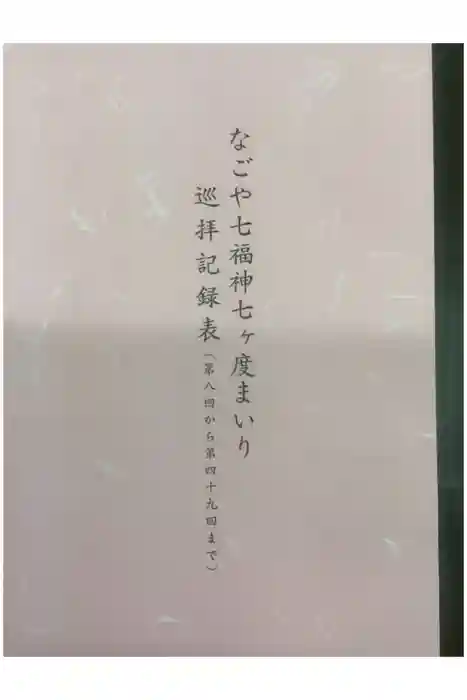 なごや七福神七ヶ度まいり
巡拝記録表(第八回から第四十九回まで)